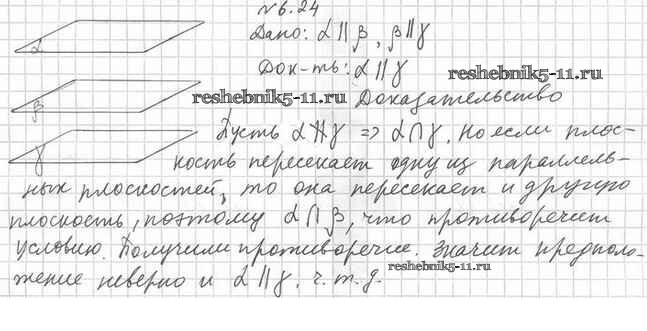 №6.24
Дано: α || β, β || γ
Док-ть: α || γ
reshebnik5-11.ru
reshebnik5-11.ru
Доказательство
Пусть α ∦ γ => α ∩ γ. Но если плос-
кость пересекает одну из параллель-
ных плоскостей, то она пересекает и другую
плоскость, поэтому α ∩ β, что противоречит
условию. Получили противоречие. Значит предполо-
жение неверно и α || γ. ч.т.д.
reshebnik5-11.ru
α
β
γ